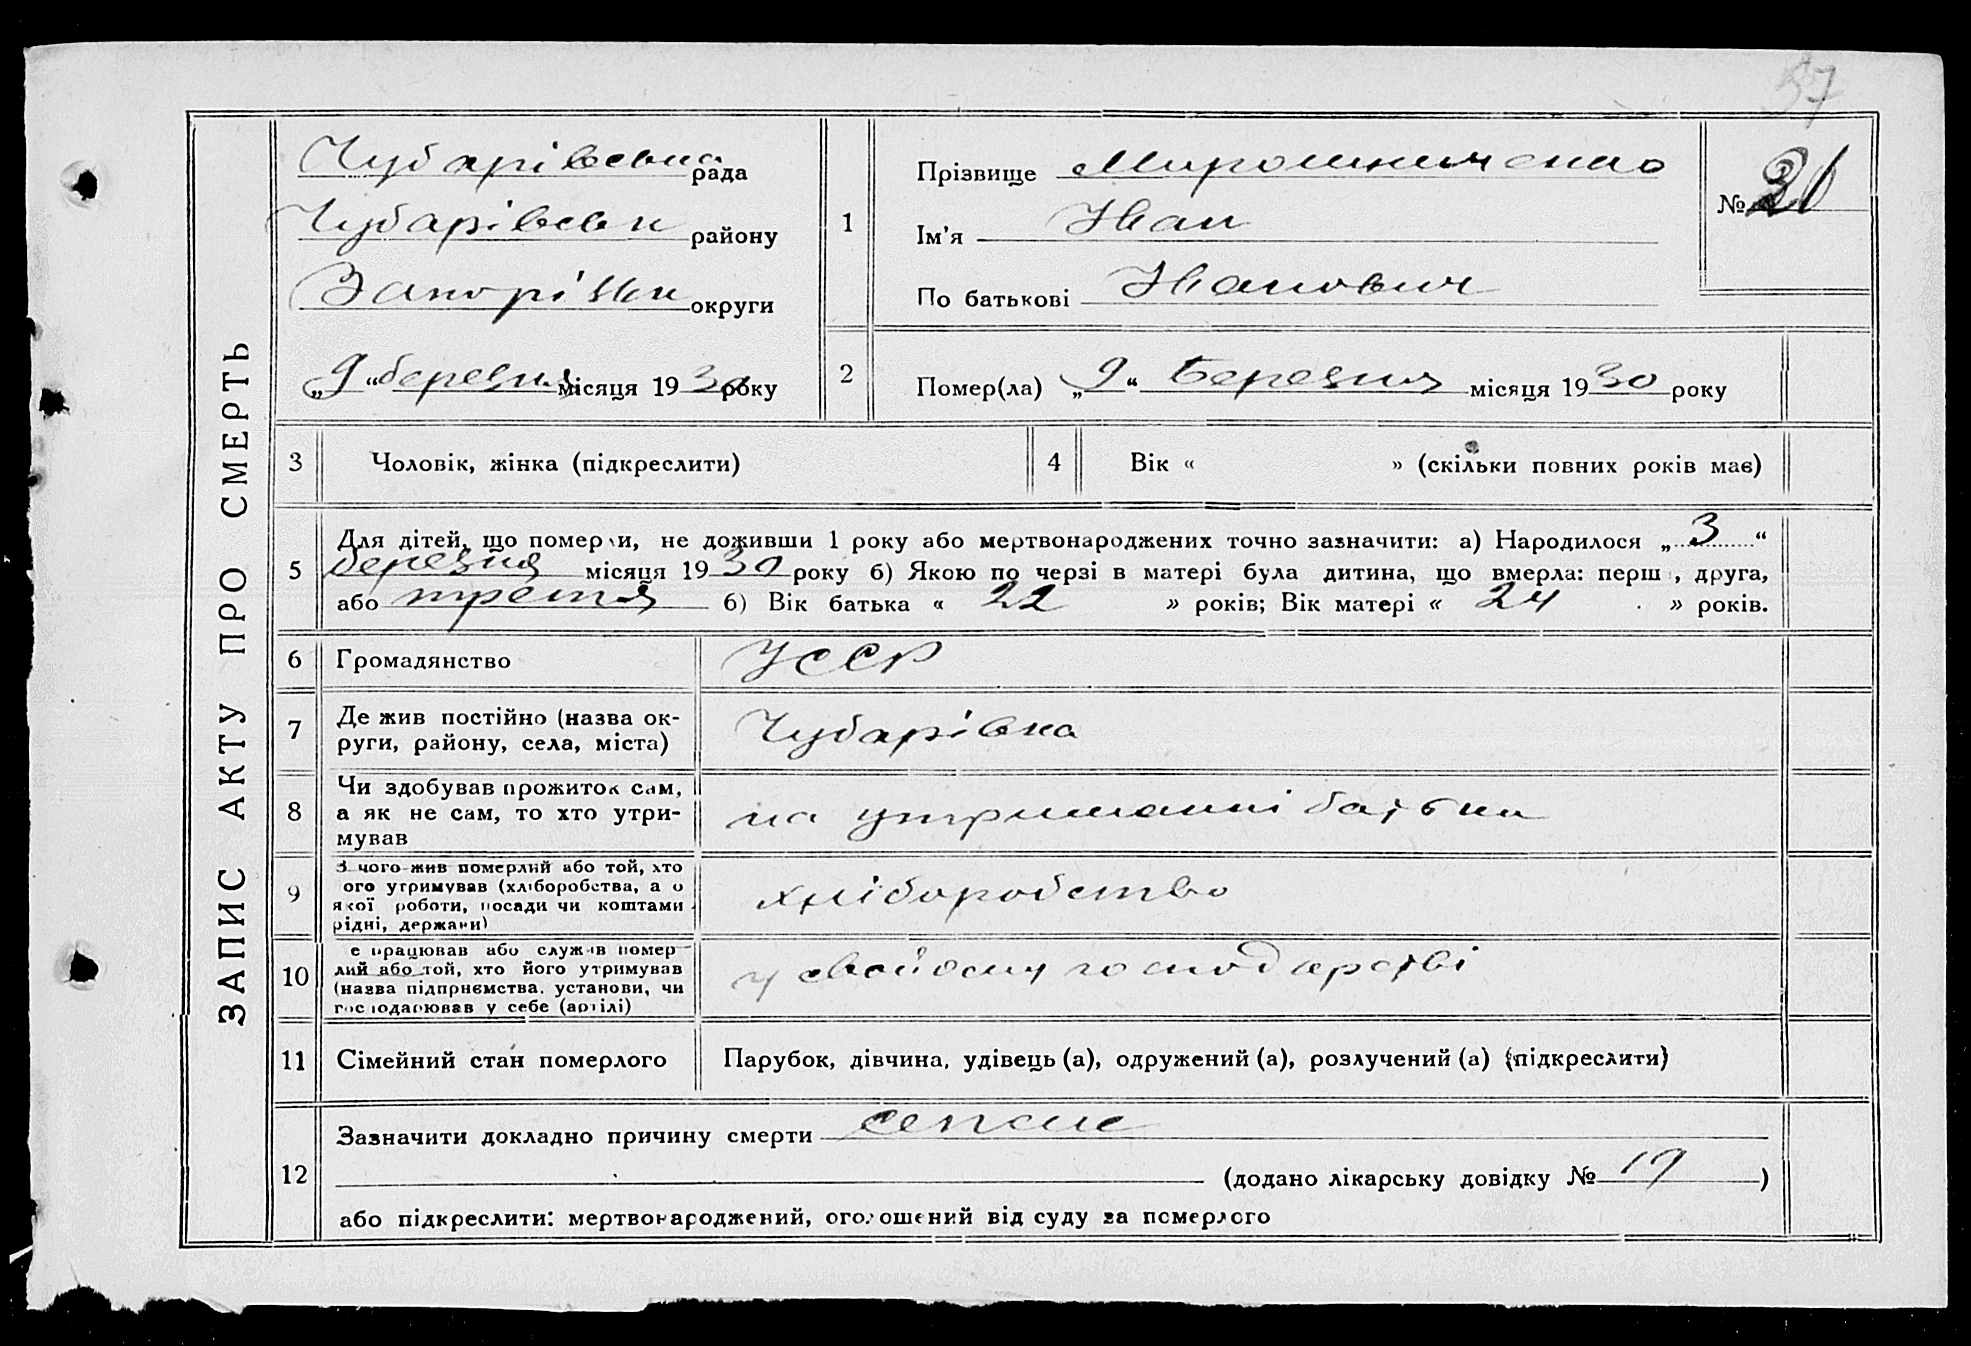 37
ЗАПИС АКТУ ПРО СМЕРТЬ
Чубарівська рада
Чубарівськ району
Запоріжськ округи
„9“ березня місяця 1930 року
1
Прізвище Мирошниченко
Ім'я Іван
По батькові Іванович
№ 31
2
Помер(ла) „9“ Березня місяця 1930 року
3 Чоловік, жінка (підкреслити)
4 Вік « » (скільки повних років має)
5 Для дітей, що померли, не доживши 1 року або мертвонароджених точно зазначити: а) Народилося „3“
березня місяця 1930 року б) Якою по черзі в матері була дитина, що вмерла: перш , друга,
або третя б) Вік батька « 22 » років; Вік матері « 24 » років.
6 Громадянство УССР
7 Де жив постійно (назва ок-
руги, району, села, міста) Чубарівка
8 Чи здобував прожиток сам,
а як не сам, то хто утри-
мував на утриманні батька
9 З чого жив померлий або той, хто
ого утримував (хліборобства, а о
якої роботи, посади чи коштами
рідні, держави) хліборобство
10 е працював або служив помер
лий або той, хто його утримував
(назва підприємства, установи, чи
господарював у себе (артілі) у свойому господарстві
11 Сімейний стан померлого Парубок, дівчина, удівець (а), одружений (а), розлучений (а) (підкреслити)
12 Зазначити докладно причину смерти сепсис
(додано лікарську довідку № 19 )
або підкреслити: мертвонароджений, оголошений від суду за померлого